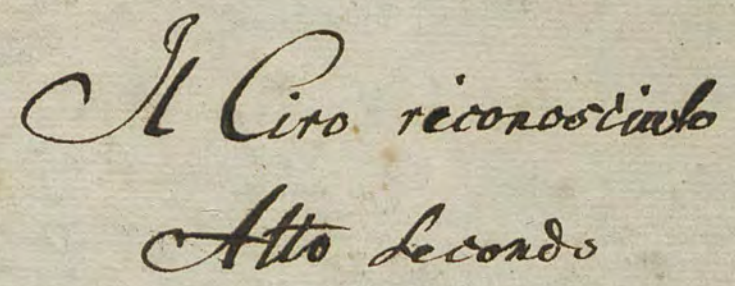 Il Ciro riconosciuto
Atto Secondo